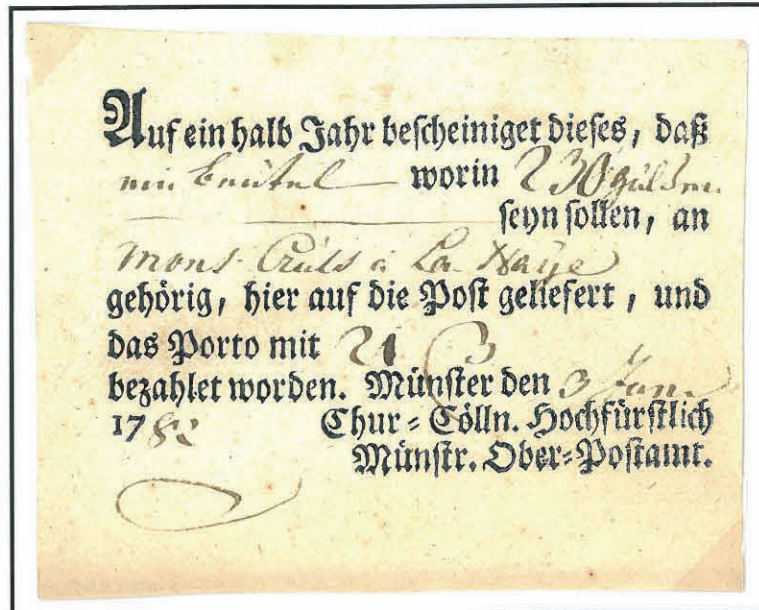 Auf ein halb Jahr bescheiniget dieses, daß
ein beütel worin 230 gülden
seyn sollen, an
Mons. à La Haye
gehörig, hier auf die Post geliefert, und
das Porto mit 21
bezahlet worden. Münster den 3 Jan.
17
Chur-Cölln. Hochfürstlich
Münstr. Ober-Postamt.